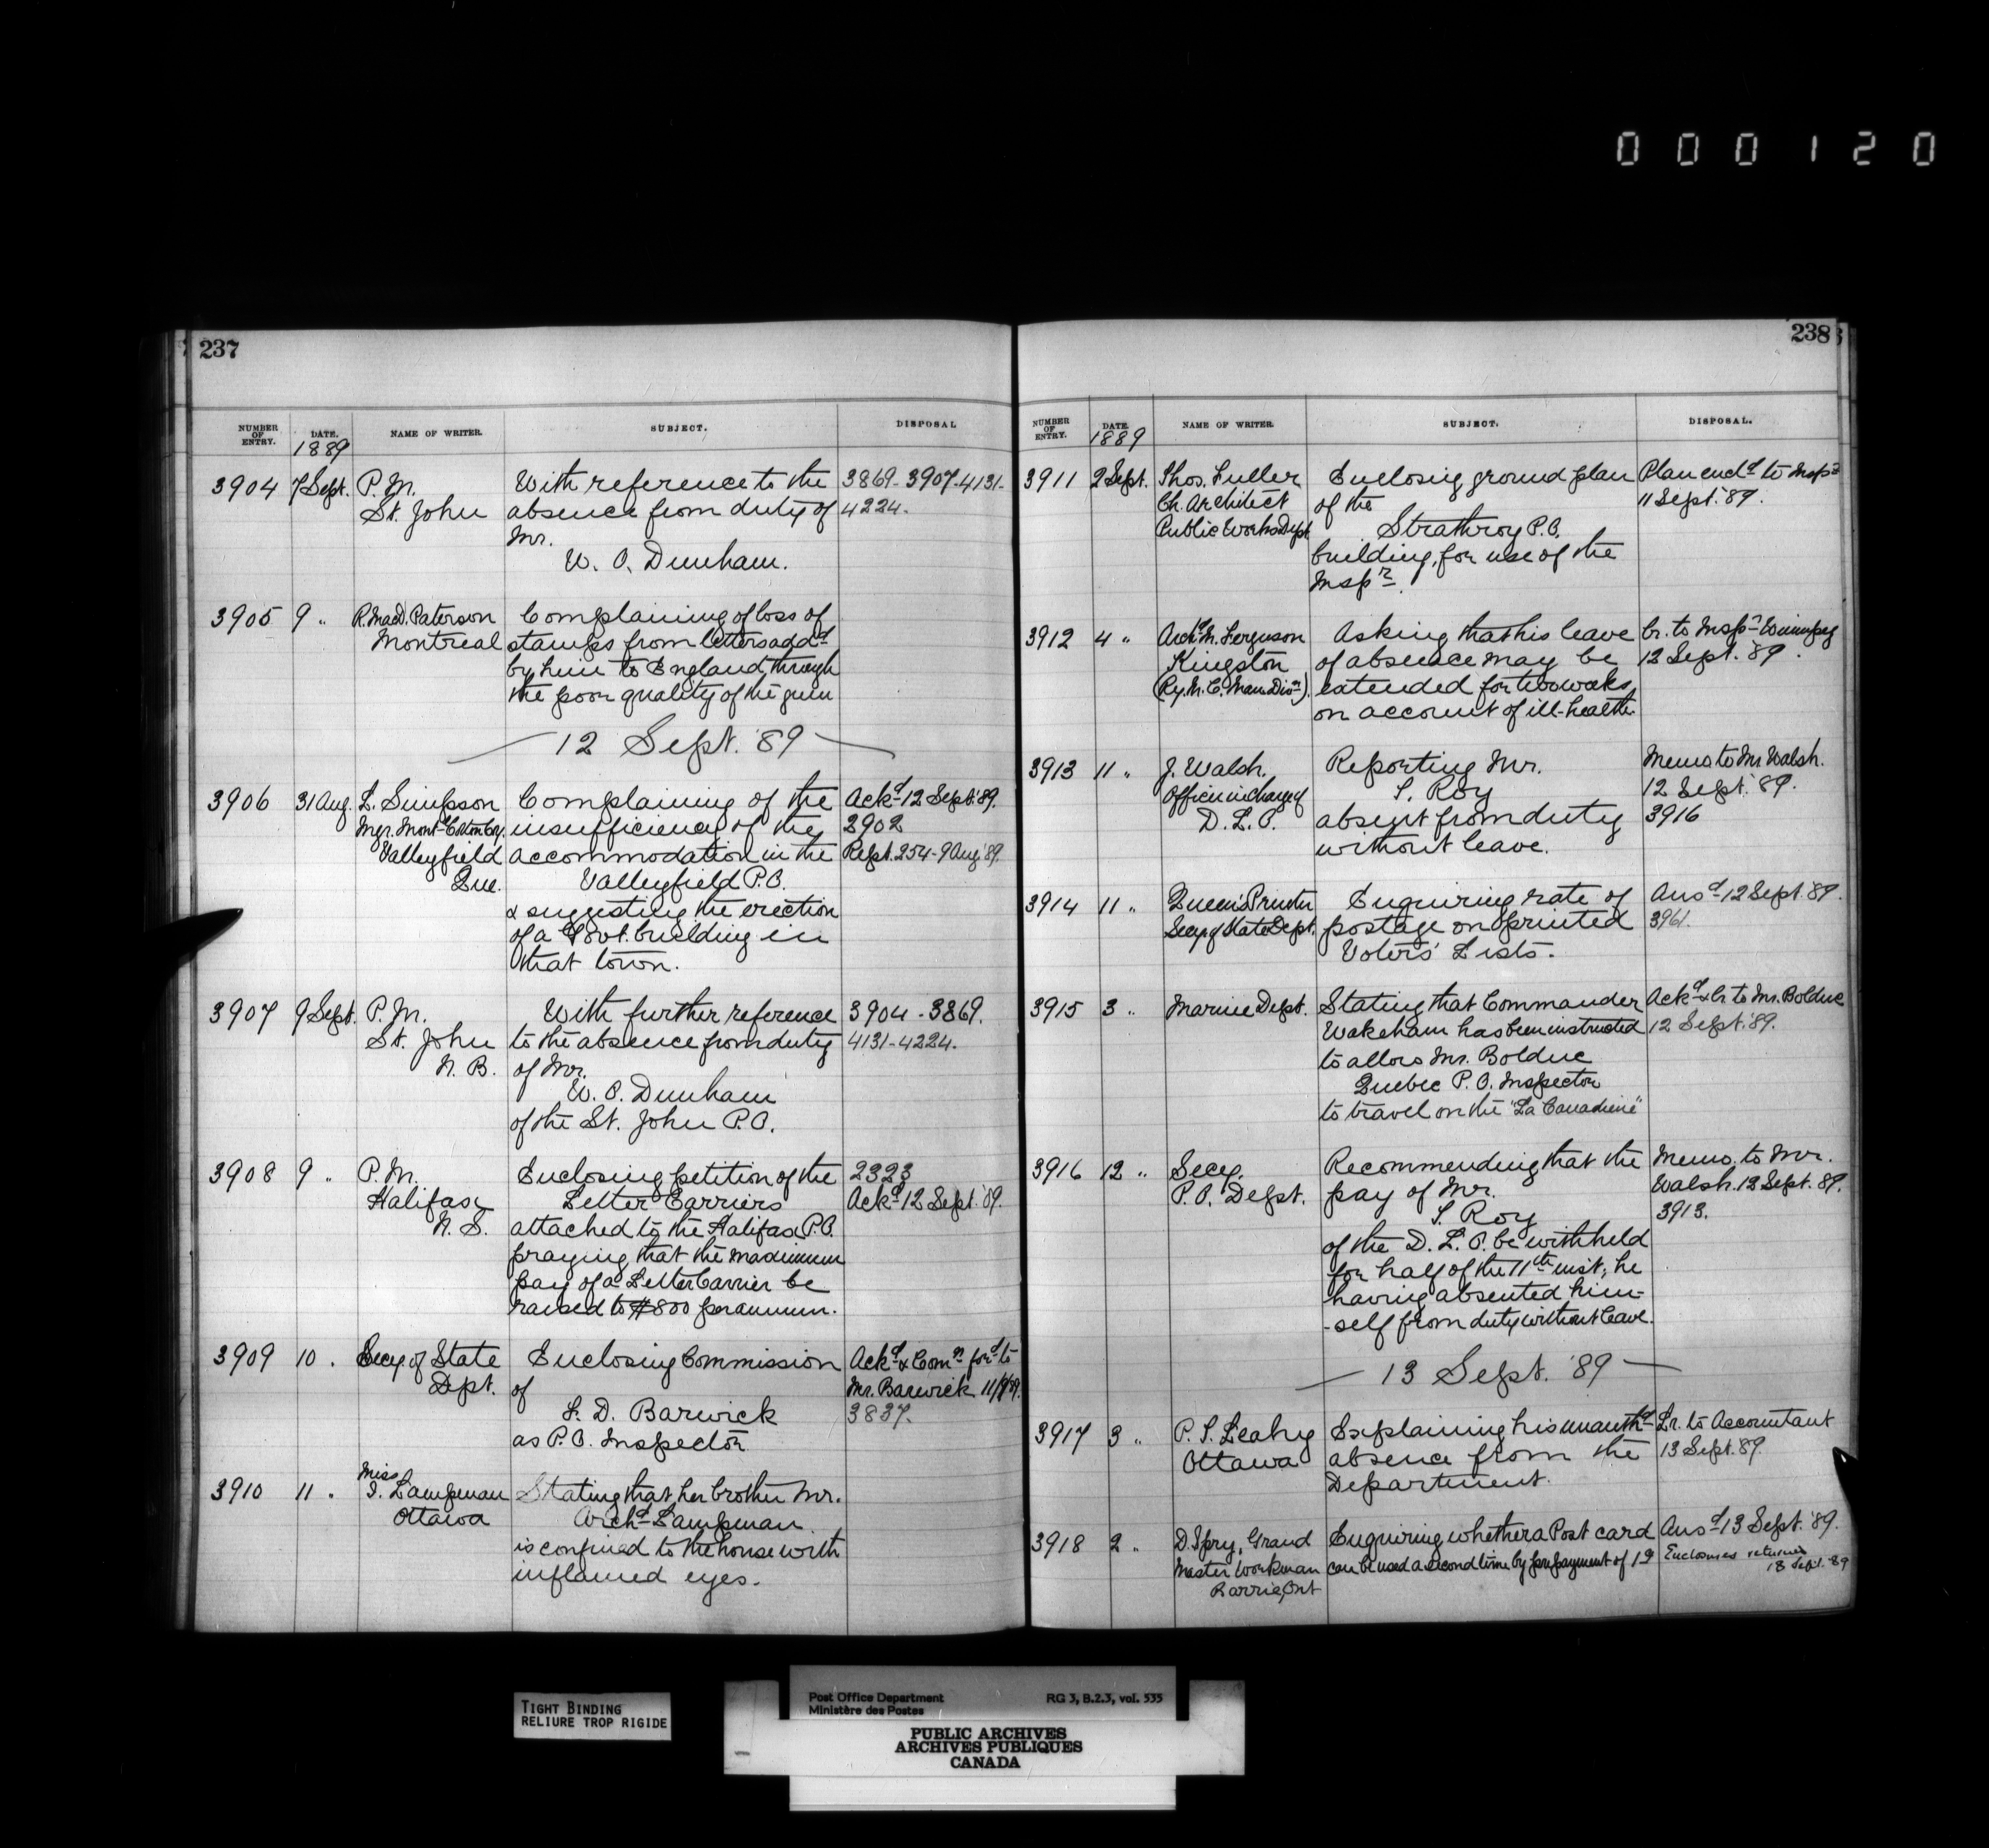 000120
237
NUMBER OF ENTRY. DATE. NAME OF WRITER. SUBJECT. DISPOSAL
1889
3904 7 Sept. P.M. With reference to the 3869-3907-4131-
St. John absence from duty of 4224.
Mr.
W. O. Dunham.
3905 9 " R. MacD. Paterson Complaining of loss of
Montreal stamps from letters add^d
by him to England, through
the poor quality of the gum
12 Sept. '89
3906 31 Aug. L. Simpson Complaining of the Ack^d 12 Sept. '89.
Mgr. Mont^l Cotton Coy. insufficiency of the 2902
Valleyfield accommodation in the Rept. 254-9 Aug '89.
Que. Valleyfield P.O.
& suggesting the erection
of a Govt. building in
that town.
3907 9 Sept. P.M. With further reference 3904-3869.
St. John to the absence from duty 4131-4224.
N.B. of Mr.
W. O. Dunham
of the St. John P.O.
3908 9 " P.M. Enclosing petition of the 2323
Halifax Letter Carriers Ack^d 12 Sept. '89.
N.S. attached to the Halifax P.O.
praying that the maximum
pay of a Letter Carrier be
raised to $800 per annum.
3909 10 " Secy. of State Enclosing Commission Ack^d & Com^n for^d to
Dept. of Mr. Barwick 11/9/89.
S. D. Barwick 3837.
as P.O. Inspector
3910 11 " Miss
I. Lampman Stating that her brother Mr.
Ottawa Arch^d Lampman
is confined to the house with
inflamed eyes.
238
NUMBER OF ENTRY. DATE. NAME OF WRITER. SUBJECT. DISPOSAL.
1889
3911 2 Sept. Thos. Fuller Enclosing ground plan Plan encl^d to Insp^r
Ch. Architect of the 11 Sept. '89.
Public Works Dept. Strathroy P.O.
building, for use of the
Insp^r.
3912 4 " Arch^d M. Ferguson Asking that his leave Lr. to Insp^r Winnipeg
Kingston of absence may be 12 Sept. '89.
(Ry. M. C. Man. Dis^n) extended for two weeks
on account of ill-health.
3913 11 " J. Walsh. Reporting Mr. Memo to Mr Walsh.
Officer in charge of S. Roy 12 Sept. '89.
D. L. O. absent from duty 3916
without leave.
3914 11 " Queen's Printer Enquiring rate of Ans^d 12 Sept. '89.
Secy of State Dept. postage on printed 3961.
Voters' Lists.
3915 3 " Marine Dept. Stating that Commander Ack^d & lr. to Mr. Bolduc
Wakeham has been instructed 12 Sept. '89.
to allow Mr. Bolduc
Quebec P.O. Inspector
to travel on the "La Canadiene"
3916 12 " Secy. Recommending that the Memo. to Mr.
P.O. Dept. pay of Mr. Walsh. 12 Sept. 89.
S. Roy 3913.
of the D. L. O. be withheld
for half of the 11th inst; he
having absented him-
-self from duty without leave.
13 Sept. '89
3917 3 " P. S. Leahy Explaining his unauth^d Lr. to Accountant
Ottawa absence from the 13 Sept. 89.
Department.
3918 2 " D. Spry, Grand Enquiring whether a Post card Ans^d 13 Sept. '89.
Master Workman can be used a second time by prepayment of 1¢ Enclosures returned
Barrie, Ont 18 Sept. 89
TIGHT BINDING
RELIURE TROP RIGIDE
Post Office Department RG 3, B.2.3, vol. 535
Ministère des Postes
PUBLIC ARCHIVES
ARCHIVES PUBLIQUES
CANADA